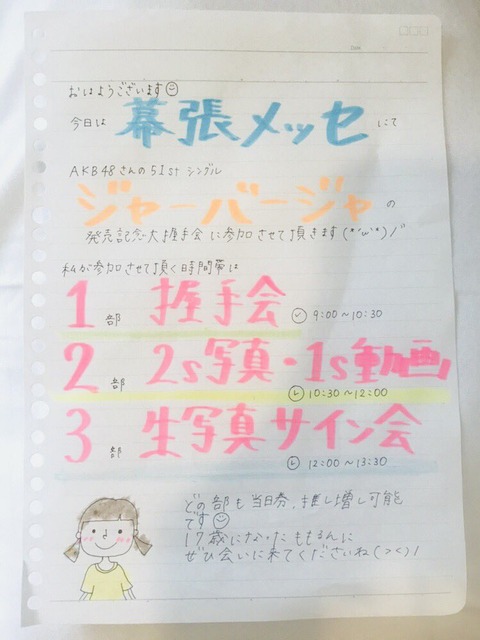 Date
おはようございます☺
今日は 幕張メッセ にて
AKB48さんの51stシングル
ジャーバージャ の
発売記念大握手会に参加させて頂きます(*'ω'*)ﾉ"
私が参加させて頂く時間帯は
1部 握手会 9:00~10:30
2部 2s写真・1s動画
10:30~12:00
3部 生写真サイン会
12:00~13:30
どの部も当日券、推し増し可能
です☺
17歳になったももるんに
ぜひ会いに来てくださいね(><)/